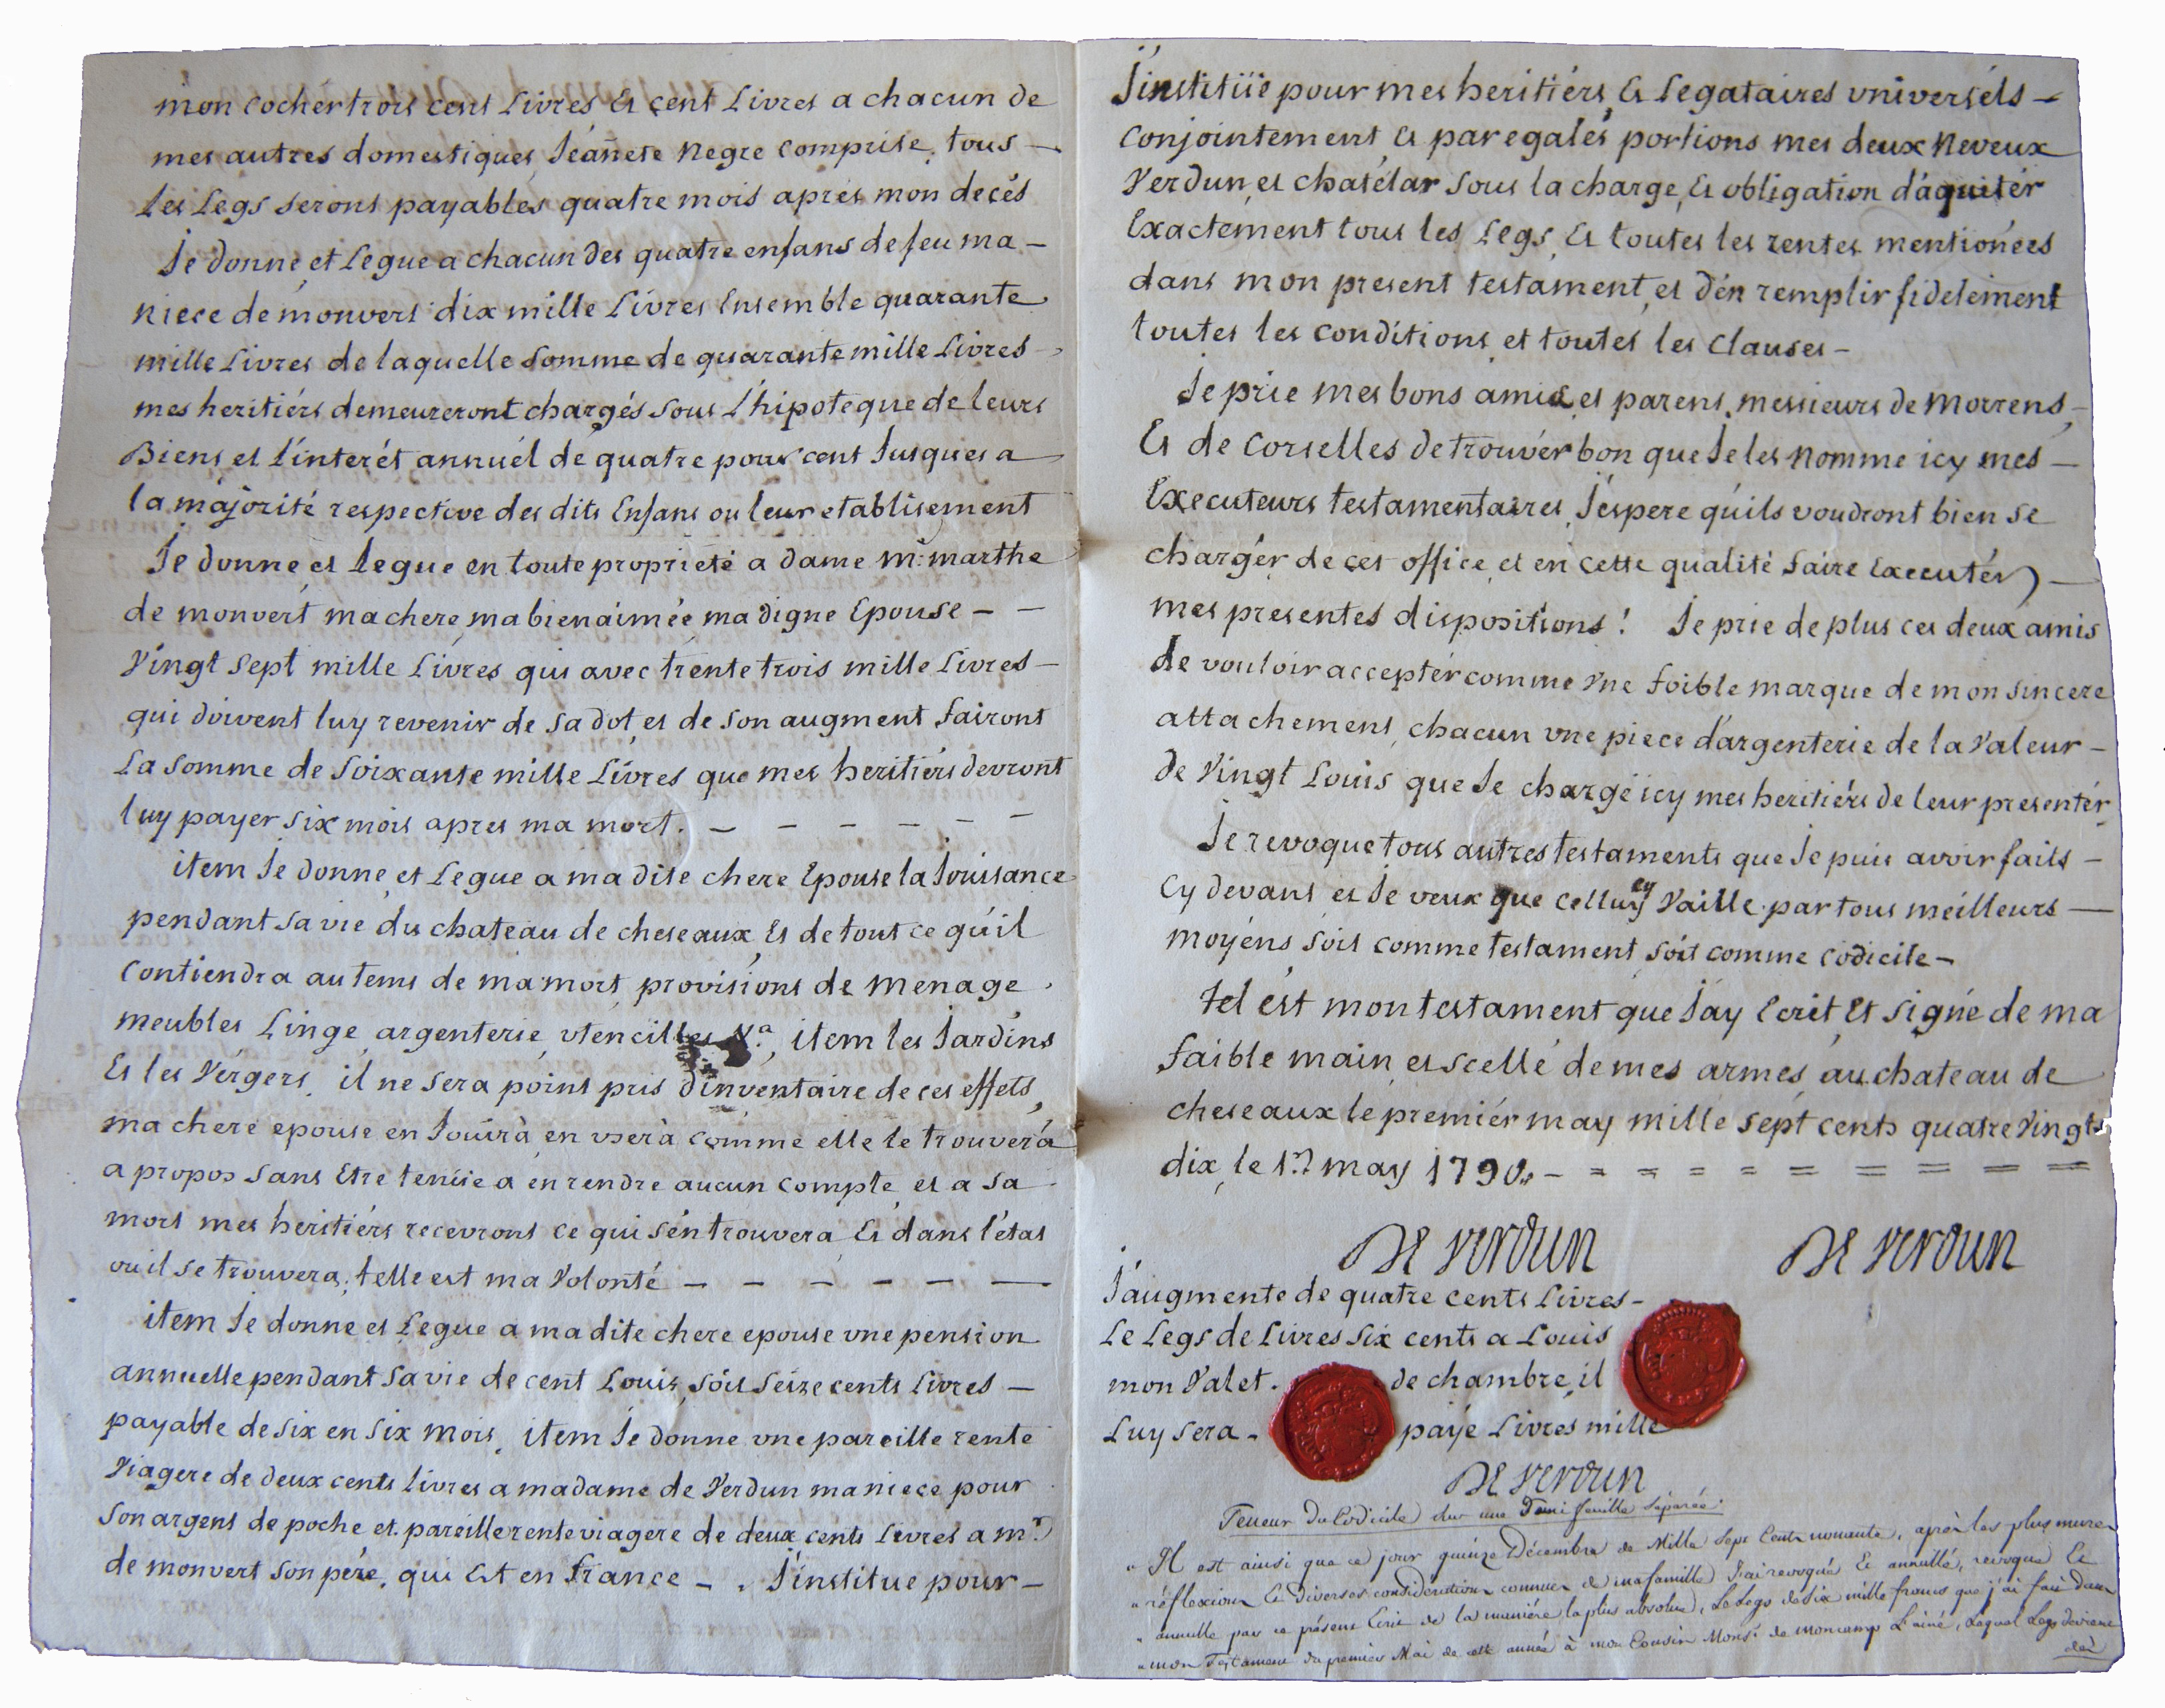 mon cochér trois cent Livres et cent Livres a chacun de
mes autres domestiques, Jéanete Negre comprise, tous —
les Legs seront payables quatre mois aprés mon decés
Je donne et Legue a chacun des quatre enfans de feu ma —
niece de monvert dix mille Livres Ensemble quarante
mille Livres de laquelle somme de quarante mille Livres —
mes heritiérs demeureront chargés sous L'hipoteque de leurs
Biens et L'interét annuél de quatre pour cent Jusques a
la majorité respective des dits Enfans ou leur etablisement
Je donne et Legue en toute proprieté a dame M: marthe
de monvert ma chere, ma bienaimée ma digne Epouse — —
Vingt sept mille Livres qui avec trente trois mille Livres —
qui doivent luy revenir de sa dot, et de son augment fairont
La somme de soixante mille Livres que mes heritiérs devront
luy payer six mois apres ma mort. — — — — — —
item Je donne et Legue a ma dite chere Epouse la Jouisance
pendant sa vie du chateau de cheseaux, Et de tout ce qu'il
contiendra au tems de ma mort, provisions de menage
meubles Linge argenterie, vtencilles &.a, item les Jardins
Et les Vérgers, il ne sera point pris d'inventaire de ces effets,
ma chere epouse en Jouira, en vsera comme elle le trouvera
a propos sans Etre tenüe a en rendre aucun compte, et a sa
mort mes heritiérs recevront ce qui s'én trouvera, Et dans l'état
ou il se trouvera, telle est ma Volonté — — — — — —
item Je donne et Legue a ma dite chere epouse vne pension
annuelle pendant sa vie de cent Louis, soit seize cents livres —
payable de six en six mois, item Je donne vne pareille rente
Viagere de deux cents livres a madame de Verdun ma niece pour
son argent de poche et pareille rente viagere de deux cents Livres a mr.
de monvert son pére, qui Est en france — . J'institue pour —
J'institüe pour mes heritiérs, Et Legataires vniverséls —
conjointement Et par egales portions mes deux Neveux
Verdun, et chatélar sous la charge, Et obligation d'aquitér
Exactement tous les Legs, Et toutes les rentes mentionées
dans mon present testament, et d'én remplir fidelement
toutes les conditions, et toutes les clauses —
Je prie mes bons amis, et parens, messieurs de Morrens,
Et de Corselles de trouvér bon que Je les Nomme icy mes —
Executeurs testamentaires, J'espere qu'ils voudront bien se
chargér de cet office, et en cette qualité faire Executér —
mes presentes dispositions! Je prie de plus ces deux amis
de vouloir acceptér comme Vne foible marque de mon sincere
attachement, chacun vne piece d'argenterie de la Valeur —
de Vingt Louis que Je charge icy mes heritiérs de leur presentér,
Je revoque tous autres testaments que Je puis avoir faits —
Cy devant et Je veux que celluy cy Vaille par tous meilleurs —
moyéns soit comme testament, soit comme codicile —
tel est mon testament que J'ay Ecrit, Et signé de ma
faible main, et scellé de mes armes au chateau de
cheseaux le premiér may mille sept cents quatre Vingts
dix, le 1er may 1790. — = = = = = = = = =
De Verdun De Verdun
J'augmente de quatre cents Livres —
Le Legs de Livres six cents a Louis
mon Valet. de chambre, il
Luy sera — payé Livres mille
De Verdun
Teneur du Codicile sur une Demi feuille séparée.
" Il est ainsi que ce jour quinze Décembre de Mille Sept Cent nonante, après les plus mures
" réflexions Et diverses considérations connues de ma famille J'ai revoqué Et annullé, revoque Et
" annulle par ce présent Ecrit de la manière la plus absolue, Le Legs de six mille francs que j'ai fait dans
" mon Testament du premier Mai de cette année à mon Cousin Monsr. de Moncamp L'ainé, Lequel Legs devient
dès